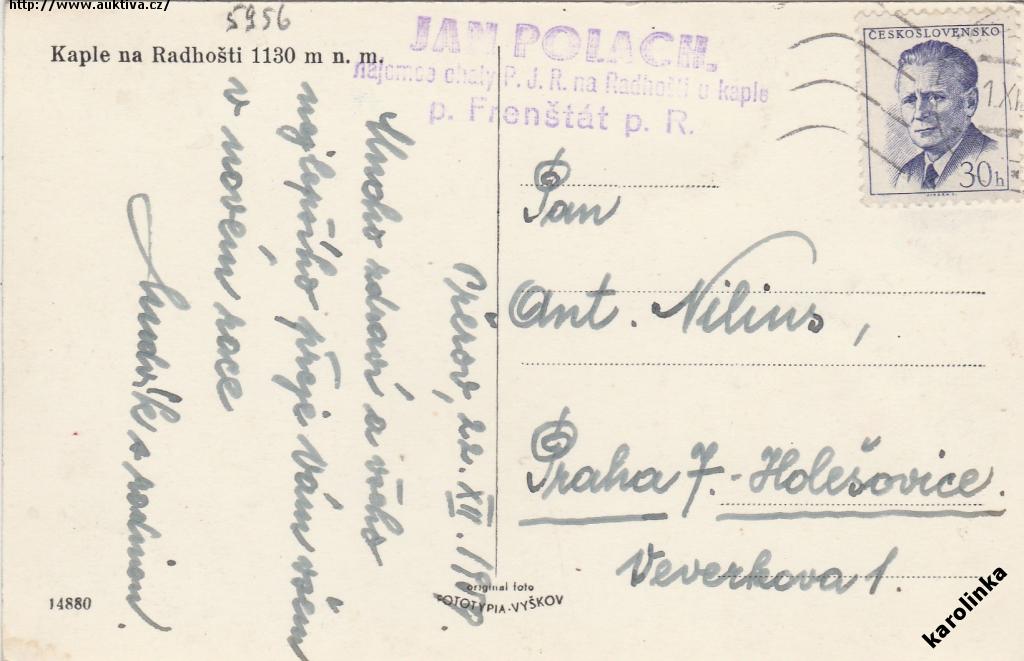 http://www.auktiva.cz/
5956
Kaple na Radhošti 1130 m n. m.
JAN POLACH.
nájemce chaty P. J. R. na Radhošti u kaple
p. Frenštát p. R.
ČESKOSLOVENSKO
30h
1.XI
Přerov, 22. XII.
Mnoho zdraví a všeho
nejlepšího přeje Vám všem
v novém roce
Ludvík s rodinou.
Pan
Ant. Nilius,
Praha 7.-Holešovice.
Veverkova 1.
14880
original foto
FOTOTYPIA-VYŠKOV
karolinka